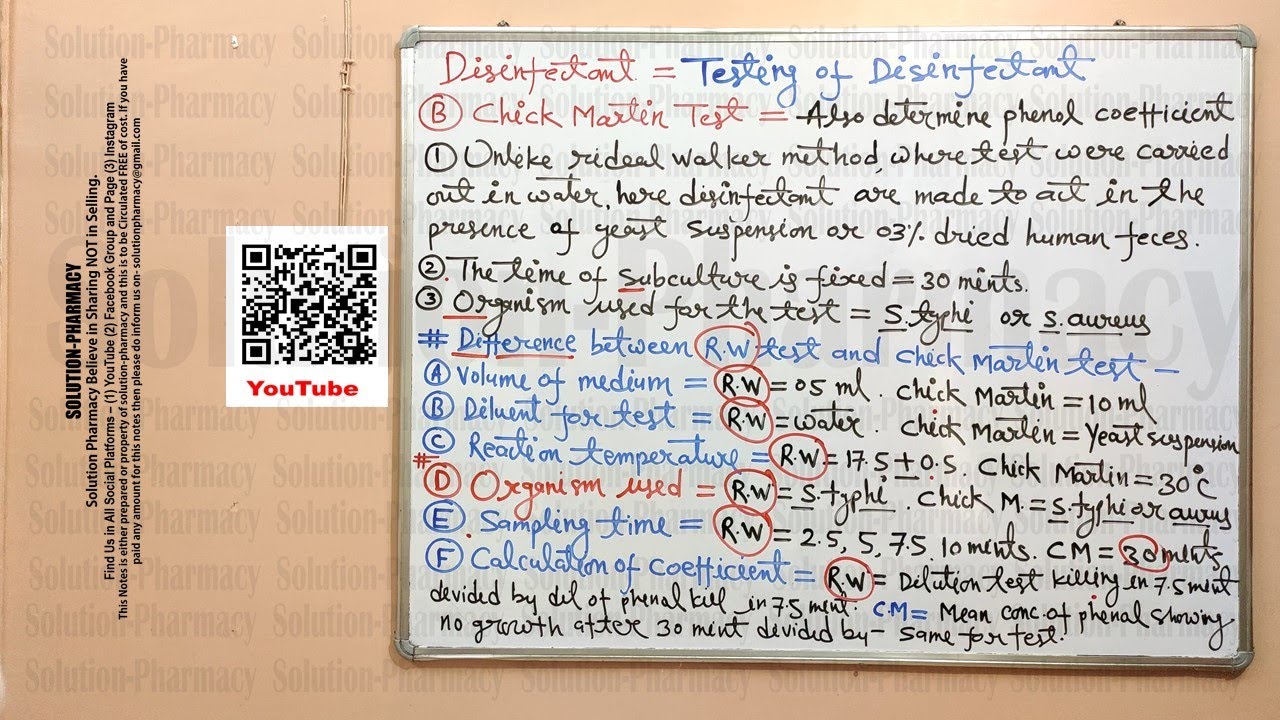 Disinfectant = Testing of Disinfectant
Ⓑ Chick Martin Test = Also determine phenol coefficient
① Unlike rideal walker method, where test were carried
out in water, here disinfectant are made to act in the
presence of yeast suspension or 03% dried human feces.
②. The time of subculture is fixed = 30 ments.
③ Organism used for the test = S. typhi or S. aureus
# Difference between R.W test and chick Martin test –
Ⓐ Volume of medium = R.W = 05 ml. Chick Martin = 10 ml
Ⓑ Diluent for test = R.W = water. Chick Martin = Yeast suspension
Ⓒ Reaction temperature = R.W = 17.5 ± 0.5 Chick Martin = 30°C
# Ⓓ Organism used = R.W = S. typhi. Chick M. = S. typhi or aurus
Ⓔ Sampling time = R.W = 2.5, 5, 7.5, 10 ments. CM = 30 ments
Ⓕ Calculation of coefficient = R.W = Dilution test killing in 7.5 ment
devided by dil of phenal kill in 7.5 ment. CM = Mean conc. of phenal showing
no growth after 30 ment devided by – same for test.
YouTube
SOLUTION-PHARMACY
Solution Pharmacy Believe in Sharing NOT in Selling.
Find Us in All Social Platforms – (1) YouTube (2) Facebook Group and Page (3) Instagram
This Notes is either prepared or property of solution-pharmacy and this is to be Circulated FREE of cost. If you have
paid any amount for this notes then please do inform us on- solutionpharmacy@gmail.com
Solution-Pharmacy